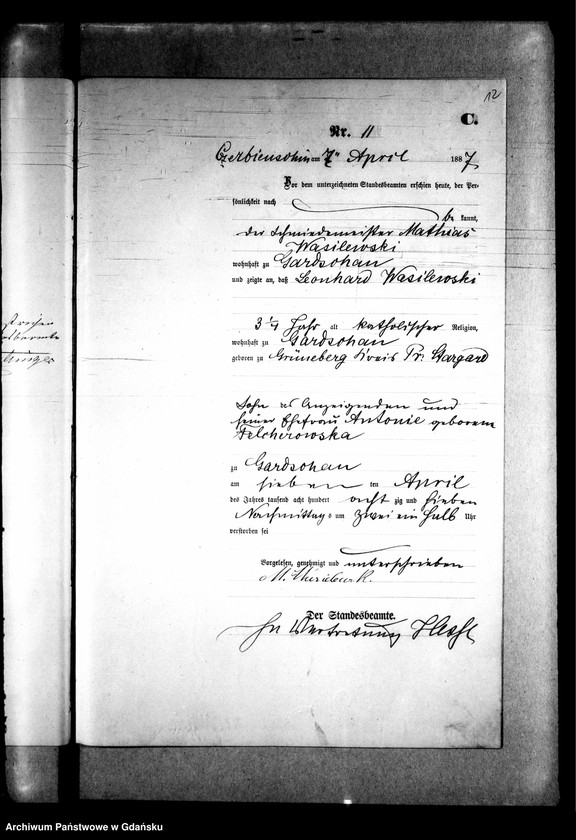 12
C.
Nr. 11
Czerbienschin am 7ten April 1887
Vor dem unterzeichneten Standesbeamten erschien heute, der Per-
sönlichkeit nach
be kannt,
der Schmiedemeister Mathias
Wasilewski
wohnhaft zu Gardschau
und zeigte an, daß Leonhard Wasilewski
3 1/4 Jahr alt katholischer Religion,
wohnhaft zu Gardschau
geboren zu Grüneberg Kreis Pr: Stargard
Sohn des Anzeigenden und
seiner Ehefrau Antonie geborenen
zu Gardschau
am sieben ten April
des Jahres tausend acht hundert acht zig und sieben
Nachmittags um zwei ein halb Uhr
verstorben sei
Vorgelesen, genehmigt und unterschrieben
Der Standesbeamte.
In Vertretung
Archiwum Państwowe w Gdańsku